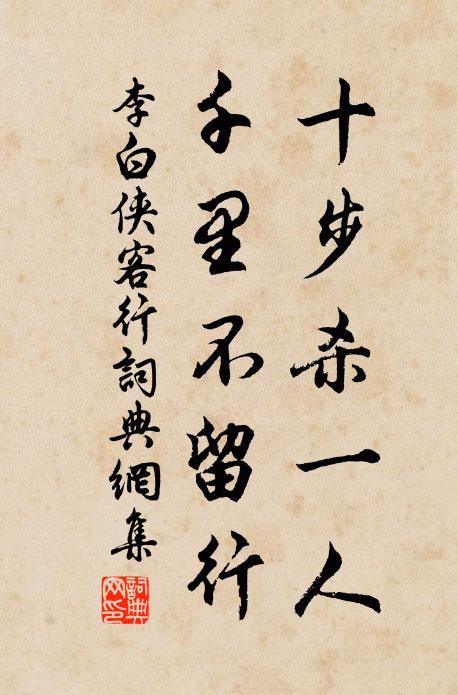 十步杀一人
千里不留行
李白侠客行詞典網集
詞典网印